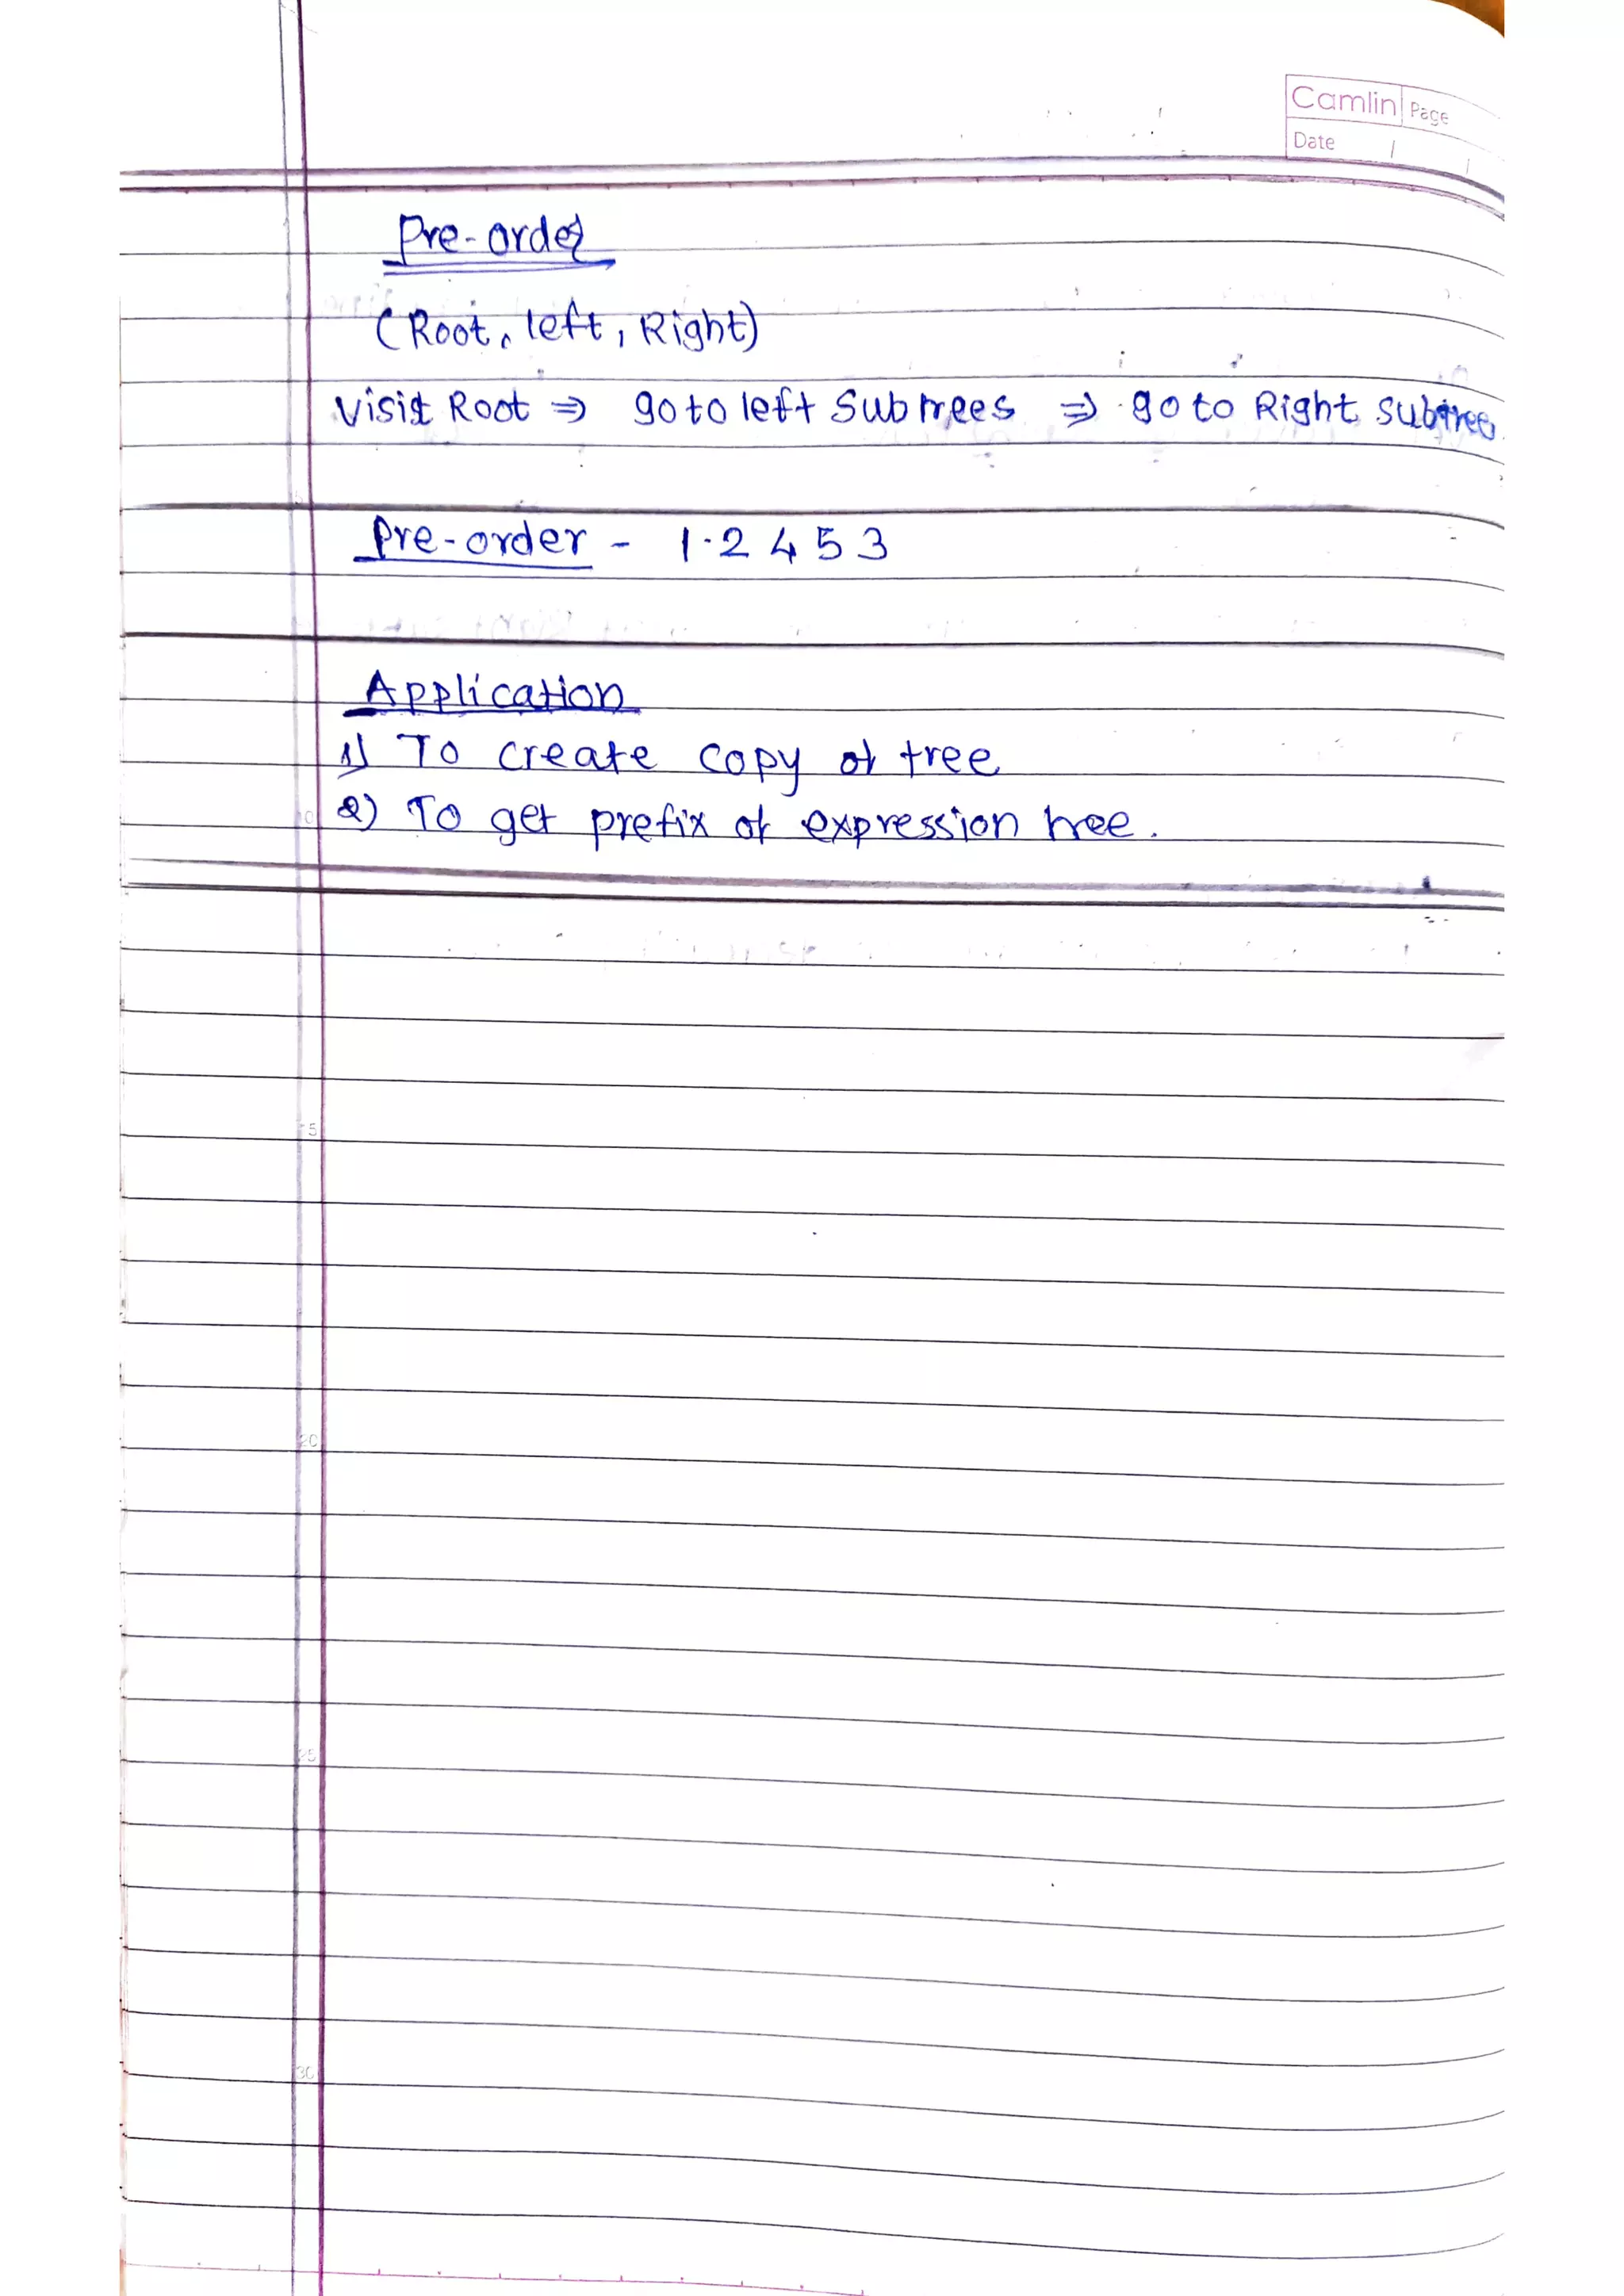 Camlin Page
Date / /
Pre-order
(Root, left, Right)
Visit Root ⇒ goto left Subtrees ⇒ goto Right subtree
5
Pre-order - 1 2 4 5 3
Application
1) To create copy of tree
10
2) To get prefix of expression tree.
15
20
25
30